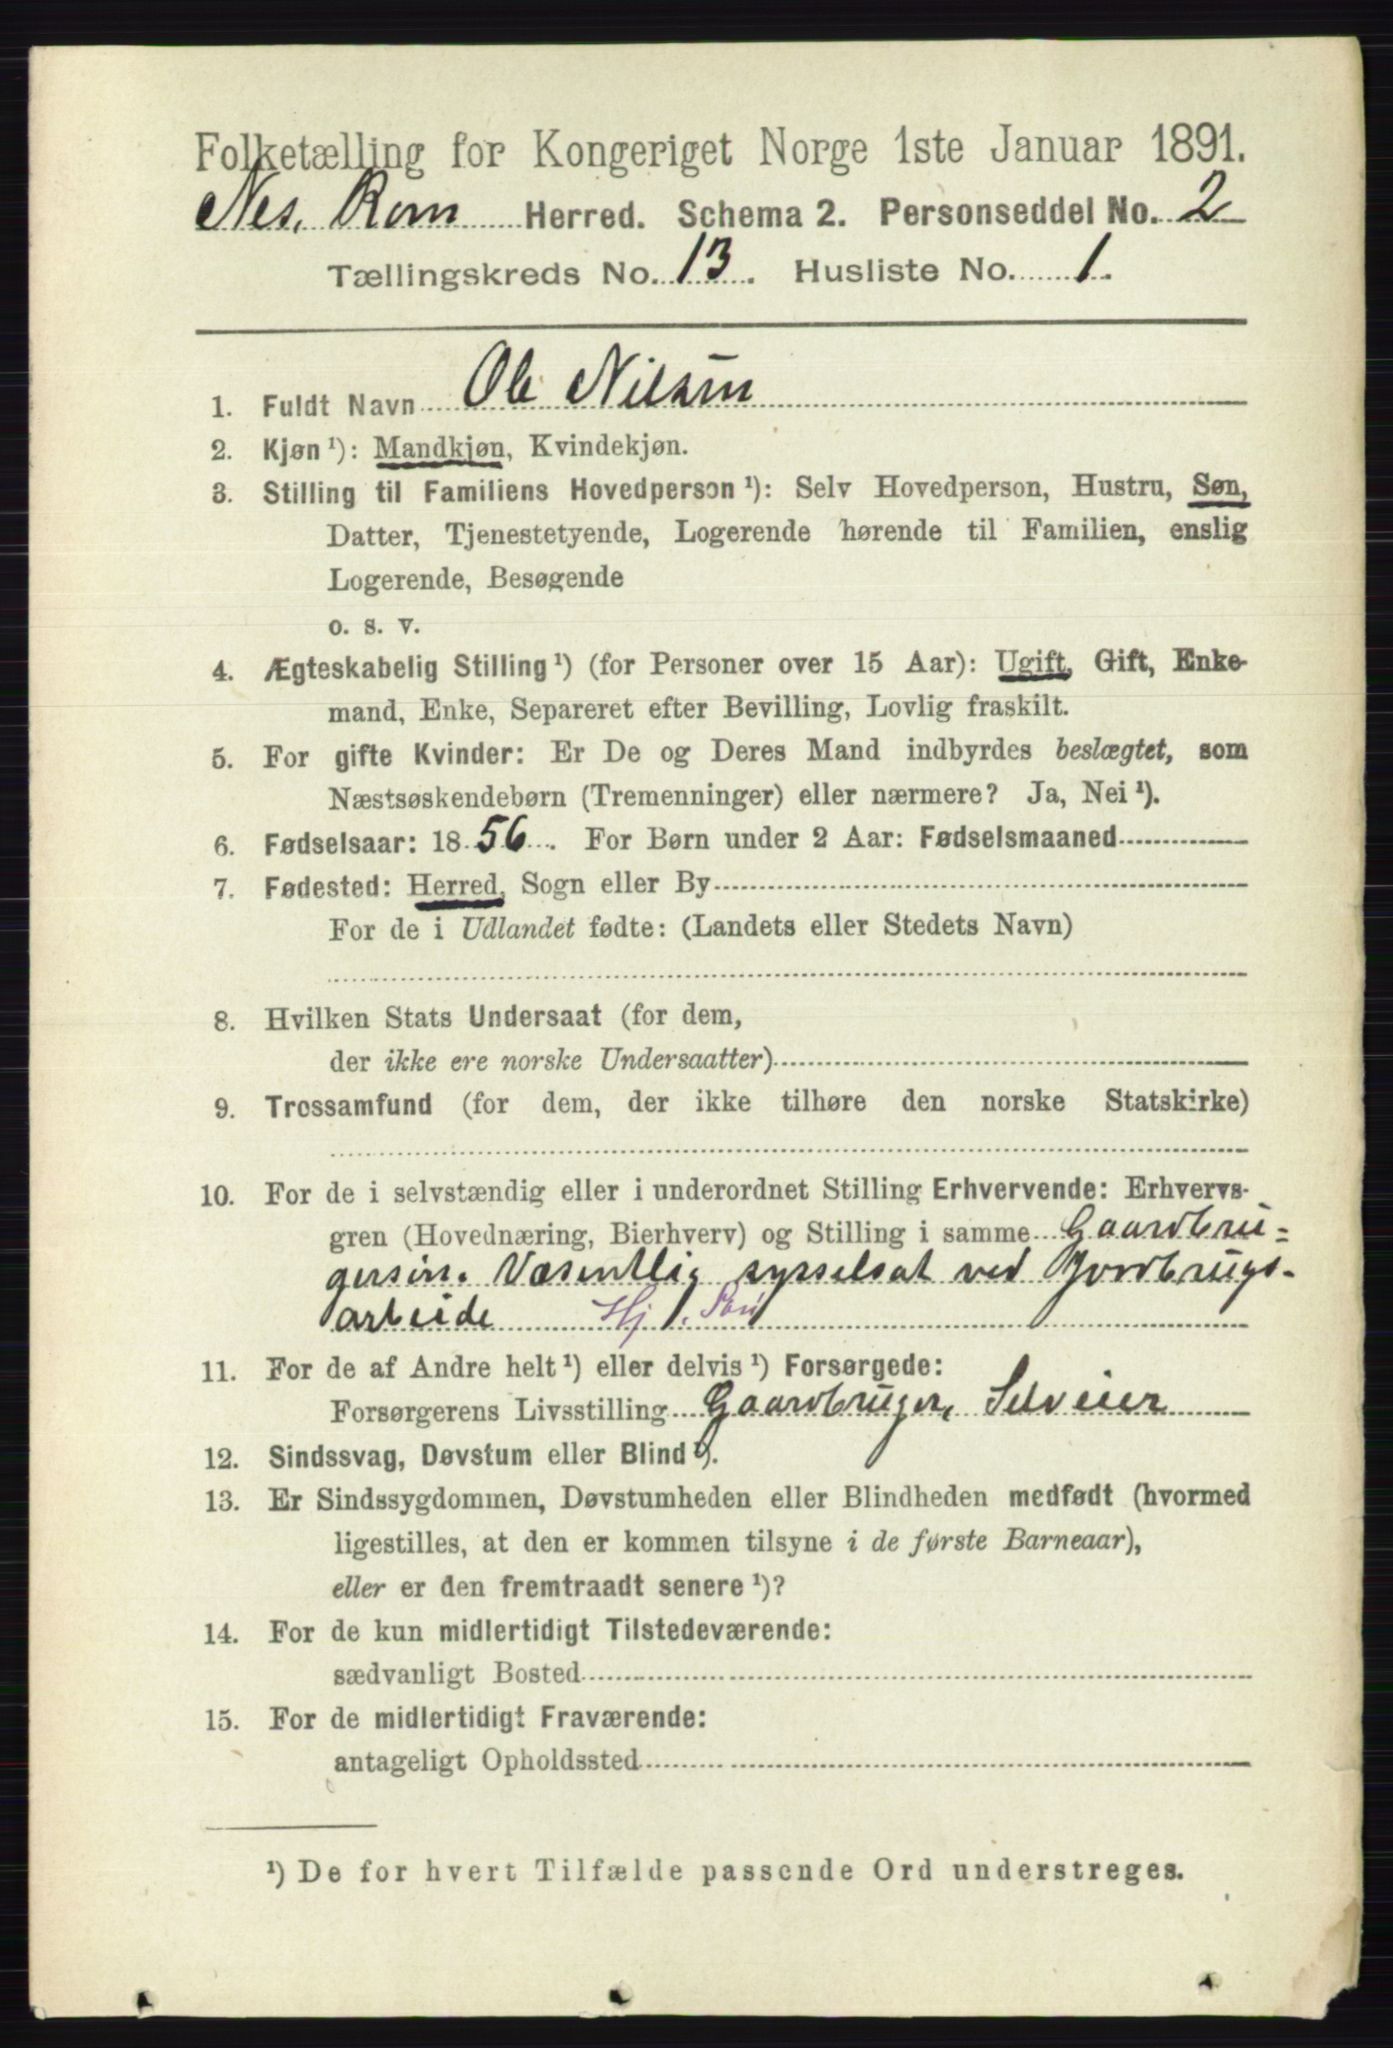 Folketælling for Kongeriget Norge 1ste Januar 1891.
Nes, Rom Herred. Schema 2. Personseddel No. 2
Tællingskreds No. 13. Husliste No. 1.
1. Fuldt Navn Ole Nilsen
2. Kjøn¹): Mandkjøn, Kvindekjøn.
3. Stilling til Familiens Hovedperson¹): Selv Hovedperson, Hustru, Søn,
Datter, Tjenestetyende, Logerende hørende til Familien, enslig
Logerende, Besøgende
o. s. v.
4. Ægteskabelig Stilling¹) (for Personer over 15 Aar): Ugift, Gift, Enke-
mand, Enke, Separeret efter Bevilling, Lovlig fraskilt.
5. For gifte Kvinder: Er De og Deres Mand indbyrdes beslægtet, som
Næstsøskendebørn (Tremenninger) eller nærmere? Ja, Nei¹).
6. Fødselsaar: 1856. For Børn under 2 Aar: Fødselsmaaned
7. Fødested: Herred, Sogn eller By
For de i Udlandet fødte: (Landets eller Stedets Navn)
8. Hvilken Stats Undersaat (for dem,
der ikke ere norske Undersaatter)
9. Trossamfund (for dem, der ikke tilhøre den norske Statskirke)
10. For de i selvstændig eller i underordnet Stilling Erhvervende: Erhvervs-
gren (Hovednæring, Bierhverv) og Stilling i samme Gaardbru=
gersøn. Væsentlig sysselsat ved Jordbrugs-
arbeide Hj. Søn
11. For de af Andre helt¹) eller delvis¹) Forsørgede:
Forsørgerens Livsstilling Gaardbruger, Selveier
12. Sindssvag, Døvstum eller Blind¹).
13. Er Sindssygdommen, Døvstumheden eller Blindheden medfødt (hvormed
ligestilles, at den er kommen tilsyne i de første Barneaar),
eller er den fremtraadt senere¹)?
14. For de kun midlertidigt Tilstedeværende:
sædvanligt Bosted
15. For de midlertidigt Fraværende:
antageligt Opholdssted
¹) De for hvert Tilfælde passende Ord understreges.